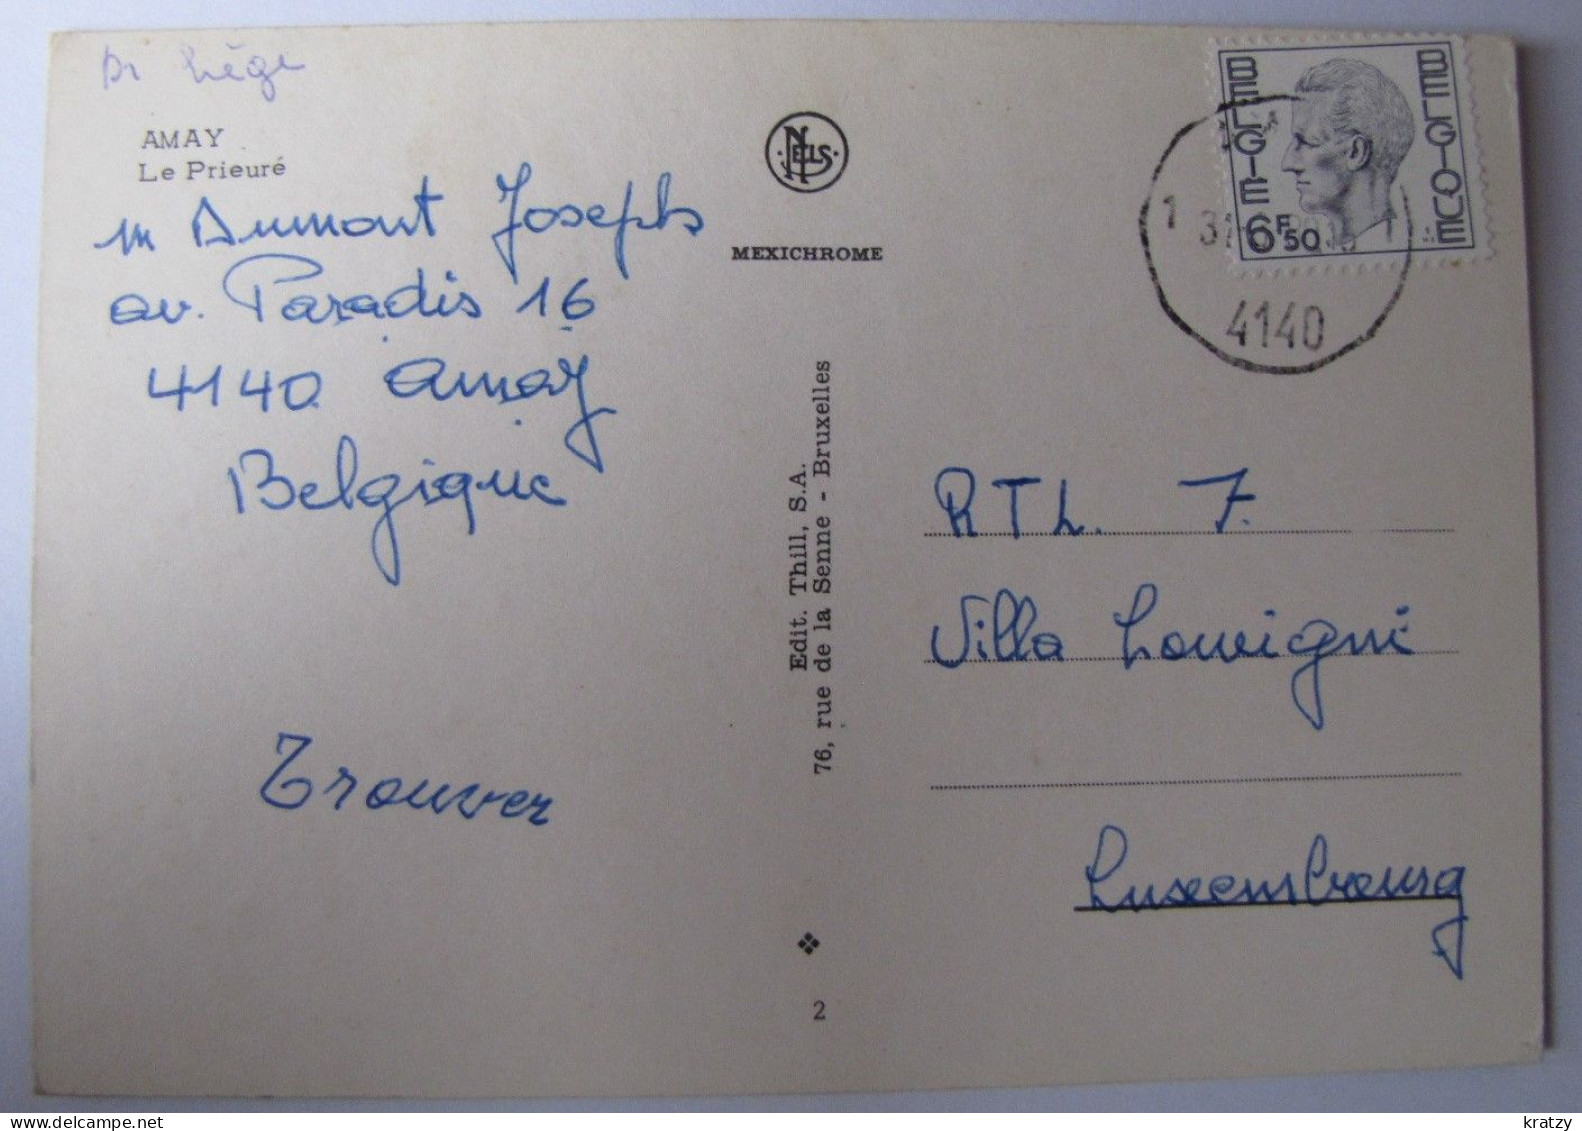 Pr Liège
AMAY
Le Prieuré
m Dumont Joseph
av. Paradis 16
4140 Amay
Belgique
Trouver
NELS
MEXICHROME
Edit. Thill, S.A.
76, rue de la Senne - Bruxelles
2
BELGIE BELGIQUE
6F50
1
4140
RTL. 7.
Villa Louvigni
Luxembourg
© delcampe.net
kratzy